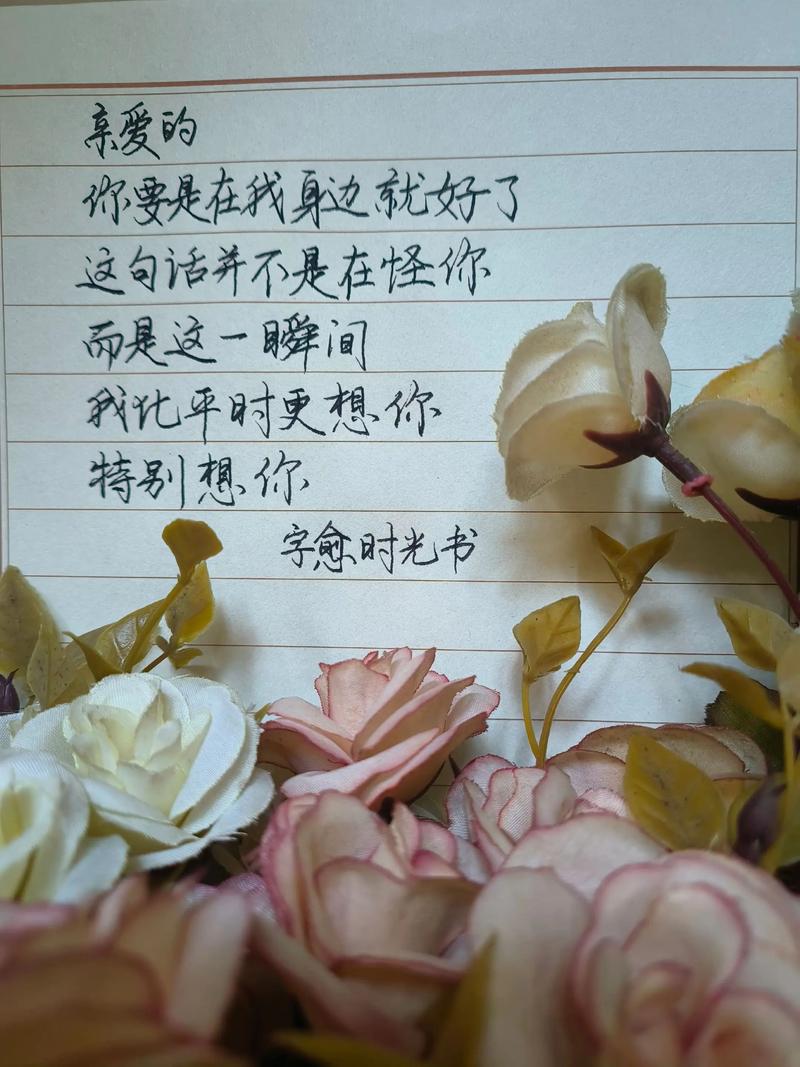 亲爱的
你要是在我身边就好了
这句话并不是在怪你
而是这一瞬间
我比平时更想你
特别想你
字愈时光书